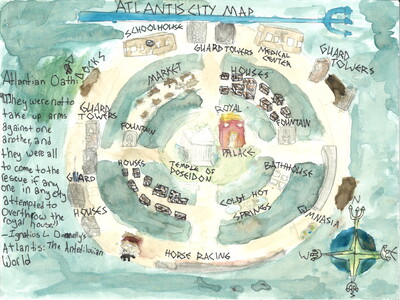 ATLANTIS CITY MAP
SCHOOLHOUSE
GUARD TOWERS
MEDICAL
CENTER
GUARD
TOWERS
DOCKS
MARKET
HOUSES
Atlantian Oath:
They were not to
take up arms
against one
another, and
they were all
to come to the
rescue if any
one in any city
attempted to
overthrow the
royal house
-Ignatius L. Donnelly's
Atlantis: The Antediluvian
World
GUARD
TOWERS
FOUNTAIN
ROYAL
PALACE
FOUNTAIN
TEMPLE OF
POSEIDON
HOUSES
BATHHOUSE
GUARD
HOUSES
COLD HOT
SPRINGS
GYMNASIA
HORSE RACING
N
W
E
S